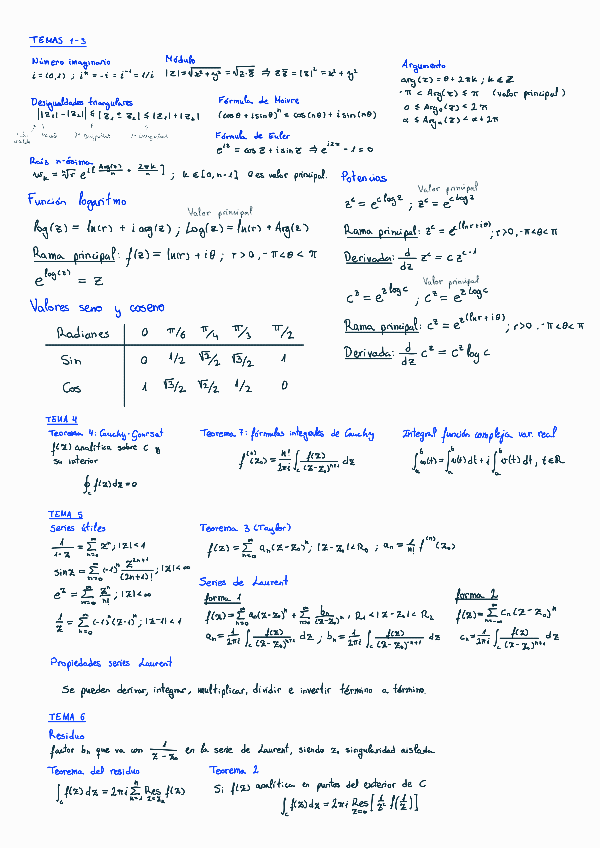 TEMAS 1-3
Número imaginario
i = (0,1) ; i³ = -i = i⁻¹ = 1/i
Módulo
|z| = √(x²+y²) = √(z·z̄) ⇒ z z̄ = |z|² = x²+y²
Argumento
arg(z) = θ + 2πk ; k ∈ Z
-π < Arg(z) ≤ π (valor principal)
0 ≤ Arg₀(z) < 2π
α ≤ Argα(z) < α+2π
Desigualdades triangulares
||z₁|-|z₂|| ≤ |z₁ ± z₂| ≤ |z₁|+|z₂|
Fórmula de Moivre
(cosθ + i sinθ)ⁿ = cos(nθ) + i sin(nθ)
Fórmula de Euler
Raíz n-ésima
; k ∈ [0, n-1] 0 es valor principal.
Función logaritmo
Valor principal
log(z) = ln(r) + i arg(z) ; Log(z) = ln(r) + Arg(z)
Rama principal: f(z) = ln(r) + iθ ; r>0, -π<θ<π
e^(log(z)) = z
Potencias
Valor principal
z^c = e^(c log z) ; z^c = e^(c Log z)
Rama principal: z^c = e^(c(ln r + iθ)) ; r>0, -π<θ<π
Derivada: d/dz z^c = c z^(c-1)
Valor principal
c^z = e^(z log c) ; c^z = e^(z Log c)
Rama principal: c^z = e^(z(ln r + iθ)) ; r>0, -π<θ<π
Derivada: d/dz c^z = c^z log c
Valores seno y coseno
Radianes 0 π/6 π/4 π/3 π/2
Sin 0 1/2 √2/2 √3/2 1
Cos 1 √3/2 √2/2 1/2 0
TEMA 4
Teorema 4: Cauchy-Goursat
f(z) analítica sobre C y
su interior
∮_c f(z)dz = 0
Teorema 7: fórmulas integrales de Cauchy
f⁽ⁿ⁾(z₀) = n!/2πi ∫_c f(z)/(z-z₀)ⁿ⁺¹ dz
Integral función compleja var. real
∫_a^b w(t) = ∫_a^b u(t) dt + i ∫_a^b v(t) dt, t ∈ R
TEMA 5
Series útiles
1/(1-z) = Σ_{n=0}^∞ zⁿ ; |z|<1
sin z = Σ_{n=0}^∞ (-1)ⁿ z²ⁿ⁺¹/(2n+1)! ; |z|<∞
e^z = Σ_{n=0}^∞ zⁿ/n! ; |z|<∞
1/z = Σ_{n=0}^∞ (-1)ⁿ(z-1)ⁿ ; |z-1|<1
Teorema 3 (Taylor)
f(z) = Σ_{n=0}^∞ aₙ(z-z₀)ⁿ ; |z-z₀|<R₀ ; aₙ = 1/n! f⁽ⁿ⁾(z₀)
Series de Laurent
forma 1
f(z) = Σ_{n=0}^∞ aₙ(z-z₀)ⁿ + Σ bₙ/(z-z₀)ⁿ, R₁<|z-z₀|<R₂
aₙ = 1/2πi ∫_c f(z)/(z-z₀)ⁿ⁺¹ dz ; bₙ = 1/2πi ∫_c f(z)/(z-z₀)⁻ⁿ⁺¹ dz
forma 2
f(z) = Σ_{n=-∞}^∞ cₙ(z-z₀)ⁿ
cₙ = 1/2πi ∫_c f(z)/(z-z₀)ⁿ⁺¹ dz
Propiedades series Laurent
Se pueden derivar, integrar, multiplicar, dividir e invertir término a término.
TEMA 6
Residuo
factor bₙ que va con 1/(z-z₀) en la serie de Laurent, siendo z₀ singularidad aislada
Teorema del residuo
∫_c f(z)dz = 2πi Σ_{k=1}^n Res f(z)
Teorema 2
Si f(z) analítica en puntos del exterior de C
∫_c f(z)dz = 2πi Res_{z=0} [1/z² f(1/z)]